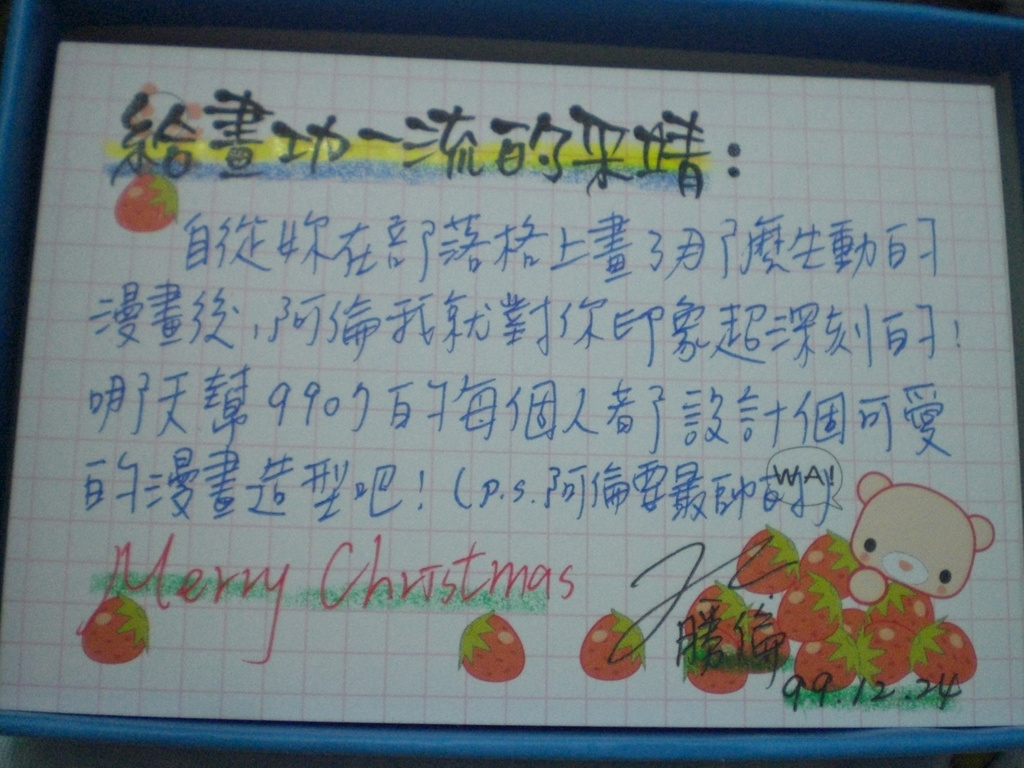 給畫功一流的采婧:
自從妳在部落格上畫了那麼生動的
漫畫後,阿倫我就對你印象超深刻的!
哪天幫9907的每個人都設計個可愛
的漫畫造型吧!(p.s.阿倫要最帥的)
WA!
Merry Christmas
騰倫
99.12.24